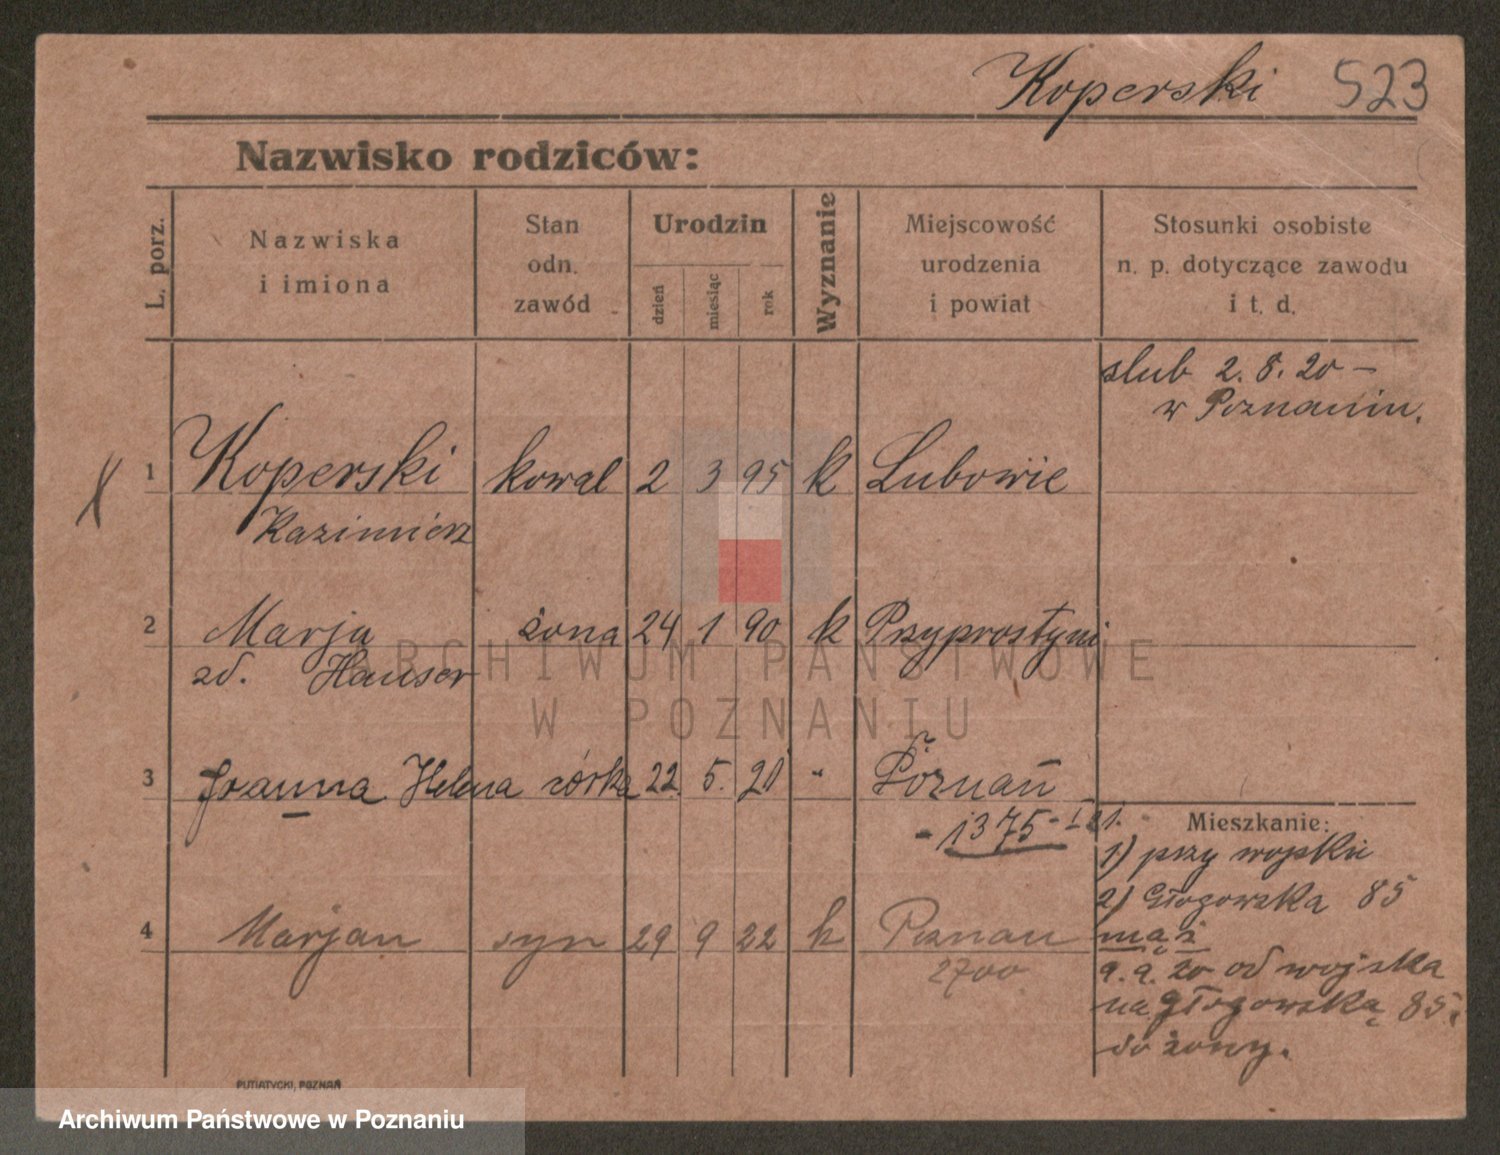 Koperski 523
Nazwisko rodziców:
L. porz.
Nazwiska
i imiona
Stan
odn.
zawód
Urodzin
dzień
miesiąc
rok
Wyznanie
Miejscowość
urodzenia
i powiat
Stosunki osobiste
n. p. dotyczące zawodu
i t. d.
slub 2. 8. 20 –
w Poznaniu.
1 Koperski kowal 2 3 95 k Lubowie
Kazimierz
2 Marja żona 24 1 90 k Przyprostyni
zd. Hauser
ARCHIWUM PAŃSTWOWE
W POZNANIU
3 Joanna Helena córka 22. 5. 21 " Poznań
- 1375 - I 21.
Mieszkanie:
1) przy wojsku
2) Głogowska 85
4 Marjan syn 29 9 22 k Poznan
2700
mąż
9. 9. 20 od wojska
na Głogowską 85.
do żony.
PUTIATYCKI, POZNAŃ
Archiwum Państwowe w Poznaniu